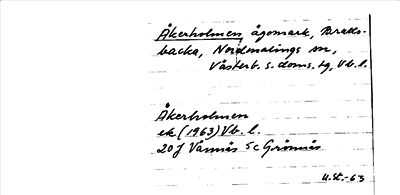 Åkerholmen, ägomark, Bratts-
backa, Nordmalings sn,
Västerb. s. doms. tg, Vb. l.
Åkerholmen
ek (1963) Vb. l.
20 J Vännäs 5c Grönnäs
U.St.-63